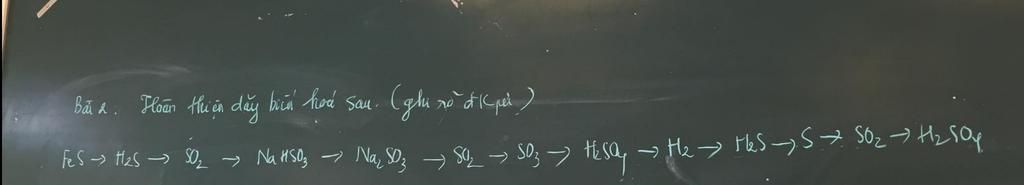 Bài 2. Hoàn thiện dãy biến hoá sau. (ghi rõ đk pứ)
FeS → H₂S → SO₂ → NaHSO₃ → Na₂SO₃ → SO₂ → SO₃ → H₂SO₄ → H₂ → H₂S → S → SO₂ → H₂SO₄